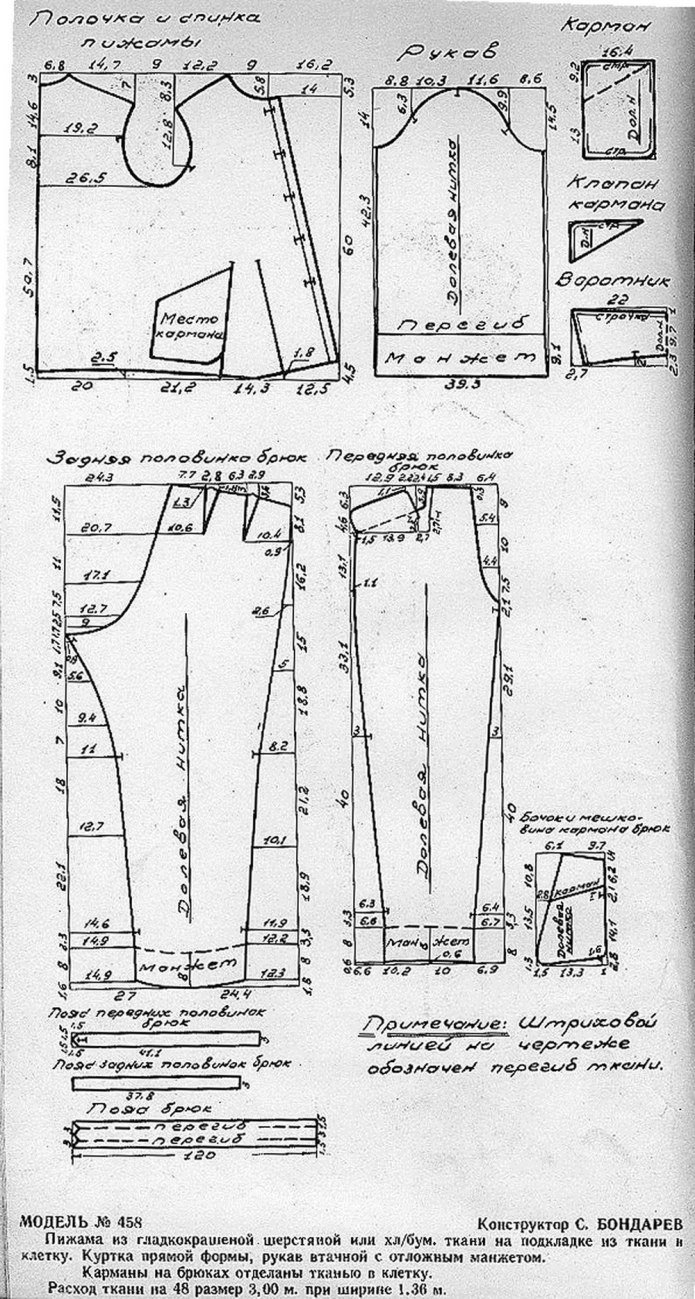 Полочка и спинка
пижамы
6,8 14,7 9 12,2 9 16,2
3 7 8,3 5,8 14 5,3
14,6 19,2 12,8
8,1 26,5
60
50,7
Место
кармана
1,5 2,5 1.8 4,5
20 21,2 14,3 12,5
Рукав
8,8 10,3 11,6 8,6
14 6,3 9,9 14,5
42,3
Долевая нитка
Перегиб
Манжет
9,1
39,5
Карман
16,4
9,2 стр.
13 Дол.н
стр.
Клапан
кармана
стр.
Д.Н
Воротник
22
строчка
1
9,7
Дол.н
2,3
2,7 2
Задняя половинка брюк
24.3 7.7 2,8 6,3 2.9
11,5 1,3 5,3
20,7 10,6 10.4 8,1
0,9
11 17.1 16,2
7,5 12.7 2,6
9
15
9,1 5,6 5
10 9.4 18,8
7 11 8.2
Долевая нитка
18 21,2
12,7 10,1
22,1 18,9
14,6 11,9
2.3 14,9 12.2 3,3
Манжет
8 8 8
14,9 12.3
1.6 27 24.4 1,8
Передняя половинка
брюк
12.9 8,3 6,4
6,3 1,1 0,3 9
4,6 5.4
1,5 13,9 2,7 10
4.4
13,1 7,5
1.1 2,1
33,1 29,1
3 3
Долевая нитка
40 40
6.3 6.4
3,3 6.6 6.7 3,3
Манжет
8 8
0,6 6,6 10,2 0,6 10 6,9
Бочок и мешко-
вина кармана брюк
6,1 9.7
10,8 1,4
6,2
2,8 карман 2,1
13,5 Долевая
нитка 14,1
1,6
1.3 2,8
1,5 13,3 1
Пояс передних половинок
брюк
1,5
1,5 1,5 3
1,5 41,1
Пояс задних половинок брюк
3
37.8
Пояс брюк
3 перегиб 1,5
3 перегиб 3 1,5
120
Примечание: Штриховой
линией на чертеже
обозначен перегиб ткани.
МОДЕЛЬ № 458 Конструктор С. БОНДАРЕВ
Пижама из гладкокрашеной шерстяной или хл/бум. ткани на подкладке из ткани в
клетку. Куртка прямой формы, рукав втачной с отложным манжетом.
Карманы на брюках отделаны тканью в клетку.
Расход ткани на 48 размер 3,00 м. при ширине 1.36 м.